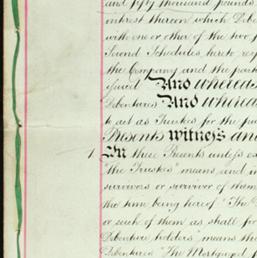 and fifty thousand pounds
interest thereon which Deb
with one or other of the two p
Second Schedules hereto resp
the Company and the part
said And whereas
Debentures And wherea
to act as Trustees for the pu
Presents witness and
1 In these Presents unless ex
"the Trustees" means and in
survivors or survivor of them
the time being hereof "The
or such of them as shall for
Debenture holders" means th
Debentures "The Mortgaged p